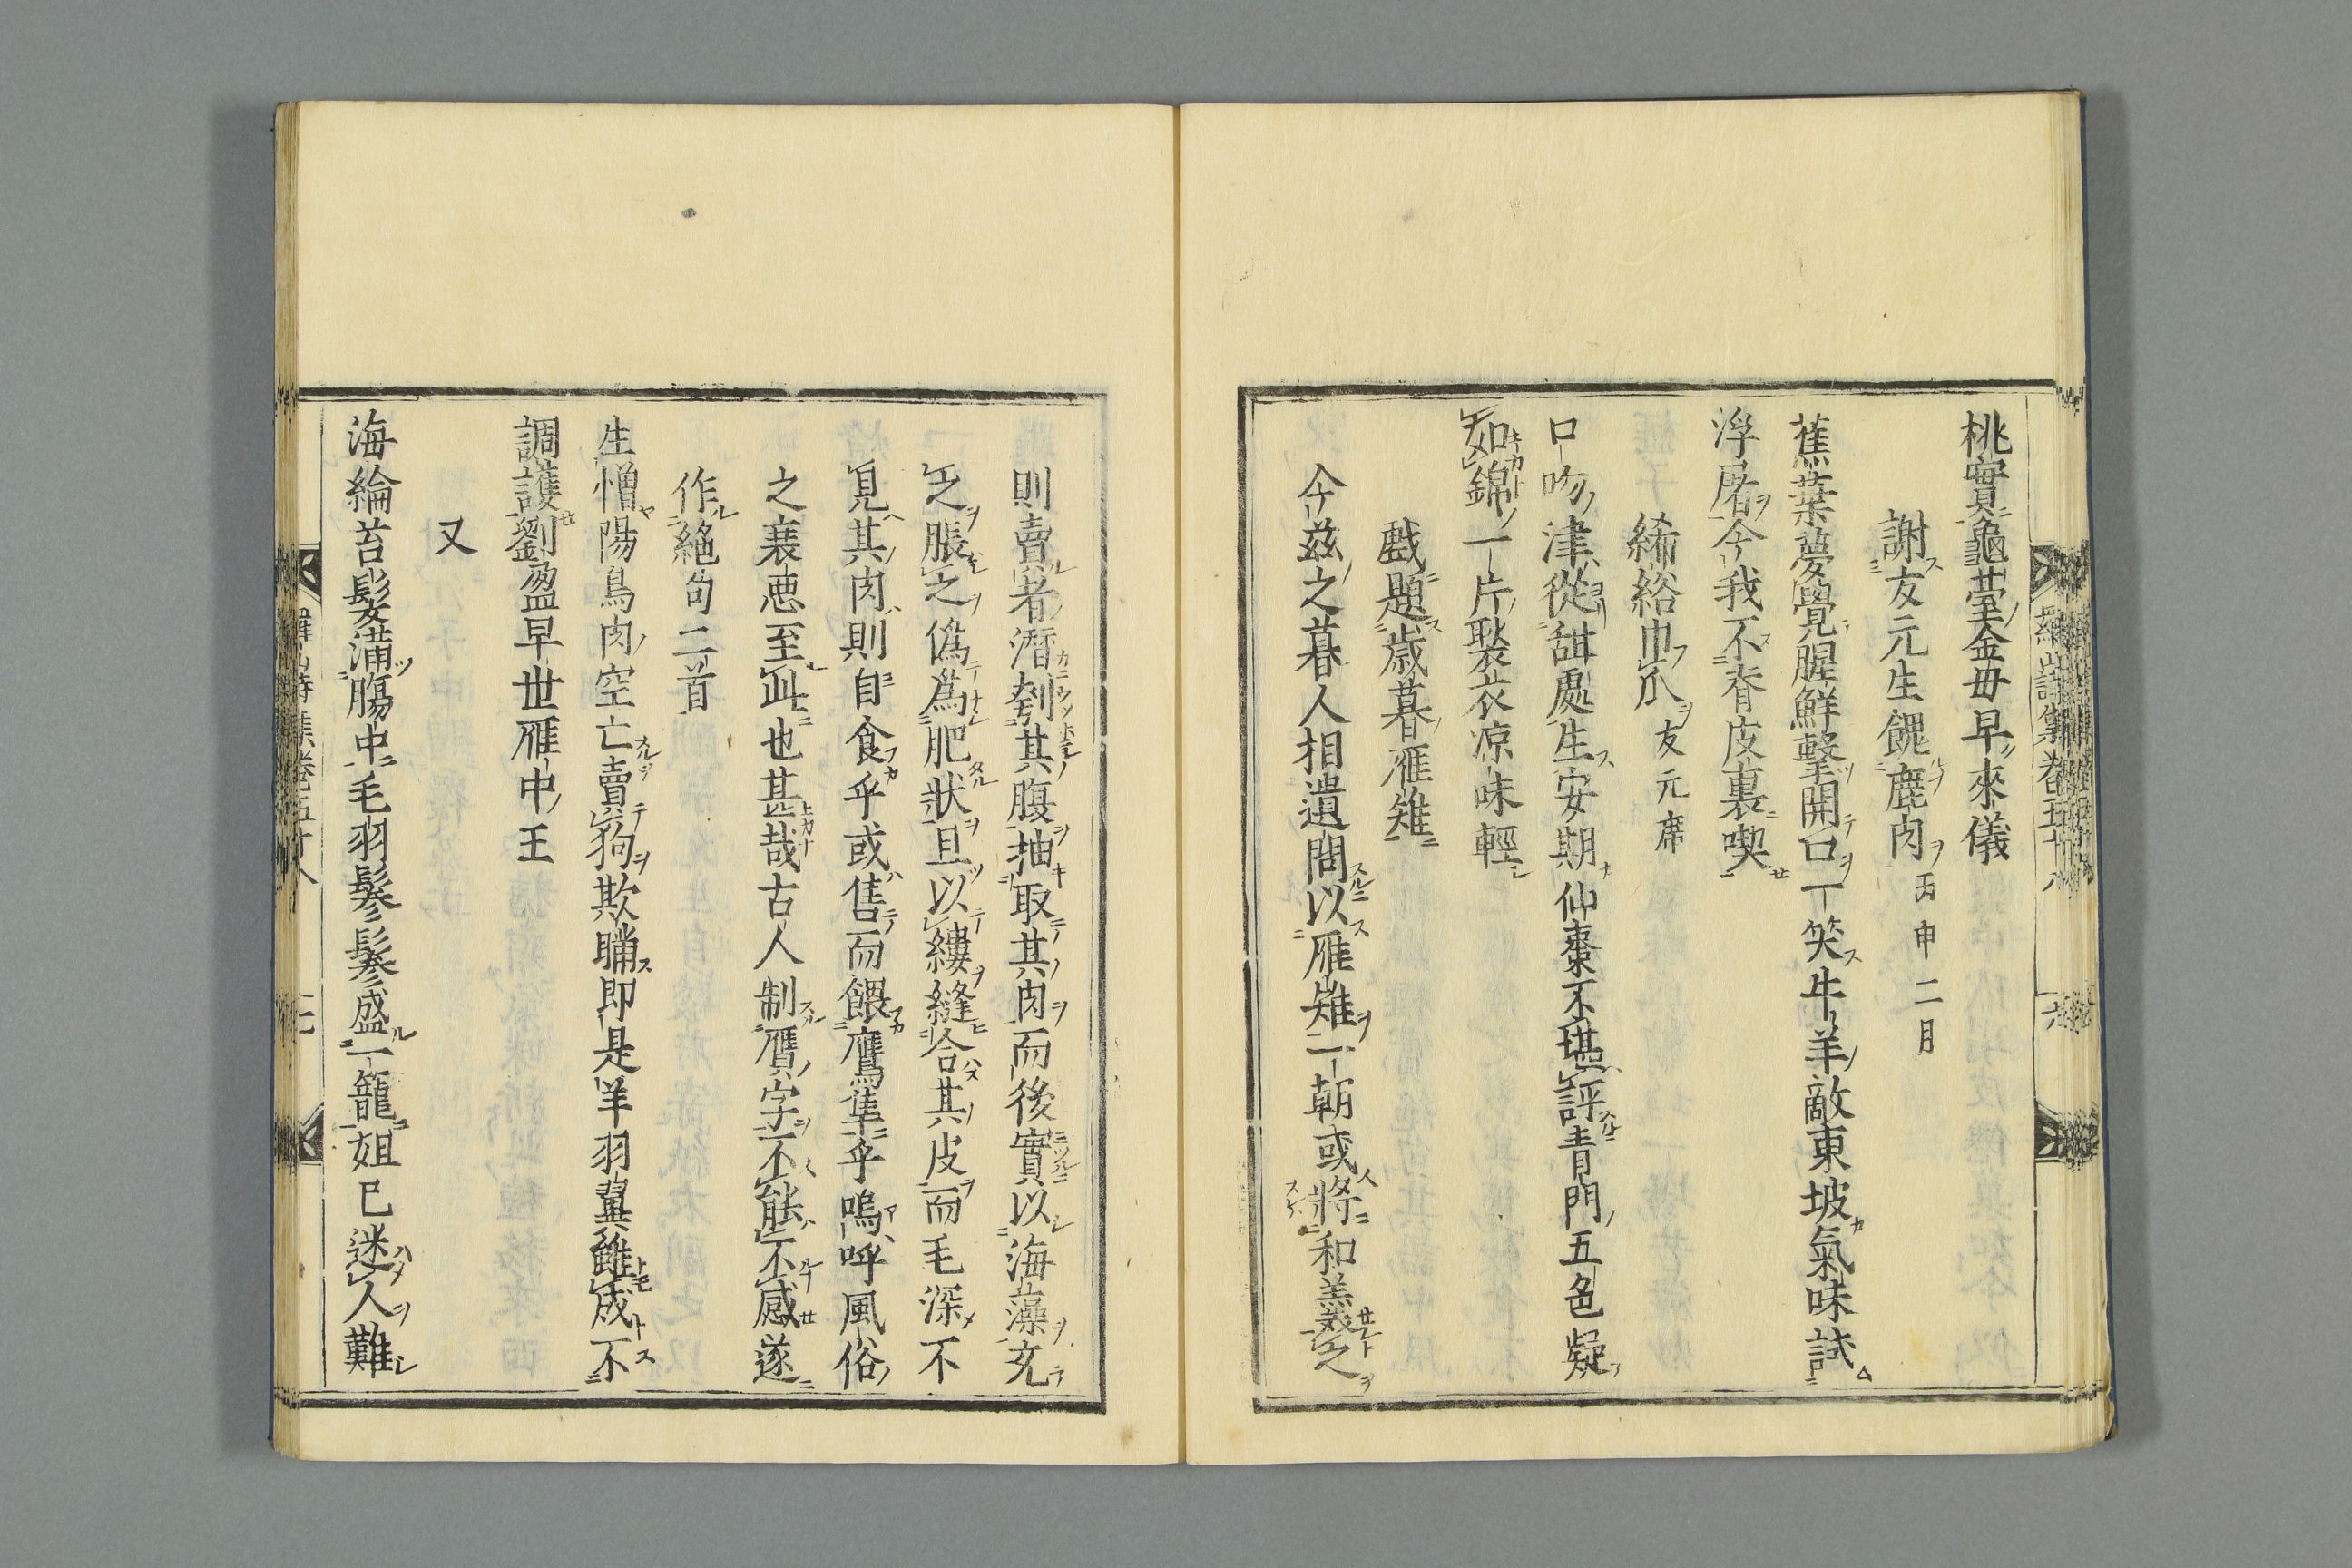 桃實龜臺金母早來儀
謝友元生餽鹿肉 丙申二月
蕉葉夢覺腥鮮擊開口一笑牛羊敵東坡氣味試
浮屠今我不脊皮裏喫
絺綌巾爪 友元席
口吻津從甜處生安期仙棗不堪評青門五色疑
如錦一片裂衣凉味輕
戲題歲暮雁雉
今茲之暮人相遺問以雁雉一朝或將和羹之
則賣者潛刳其腹抽取其肉而後實以海藻充
之脹之僞爲肥狀且以縷縫合其皮而毛深不
見其肉則自食乎或售而餵鷹隼乎嗚呼風俗
之衰惡至此也甚哉古人制贋字不能不感遂
作絶句二首
生憎陽鳥肉空亡賣狗欺瞞即是羊羽翼雖成不
調護劉盈早世雁中王
又
海綸苔髮滿腸中毛羽鬖鬖盛一籠姐已迷人難
羅山詩集卷五十八 六